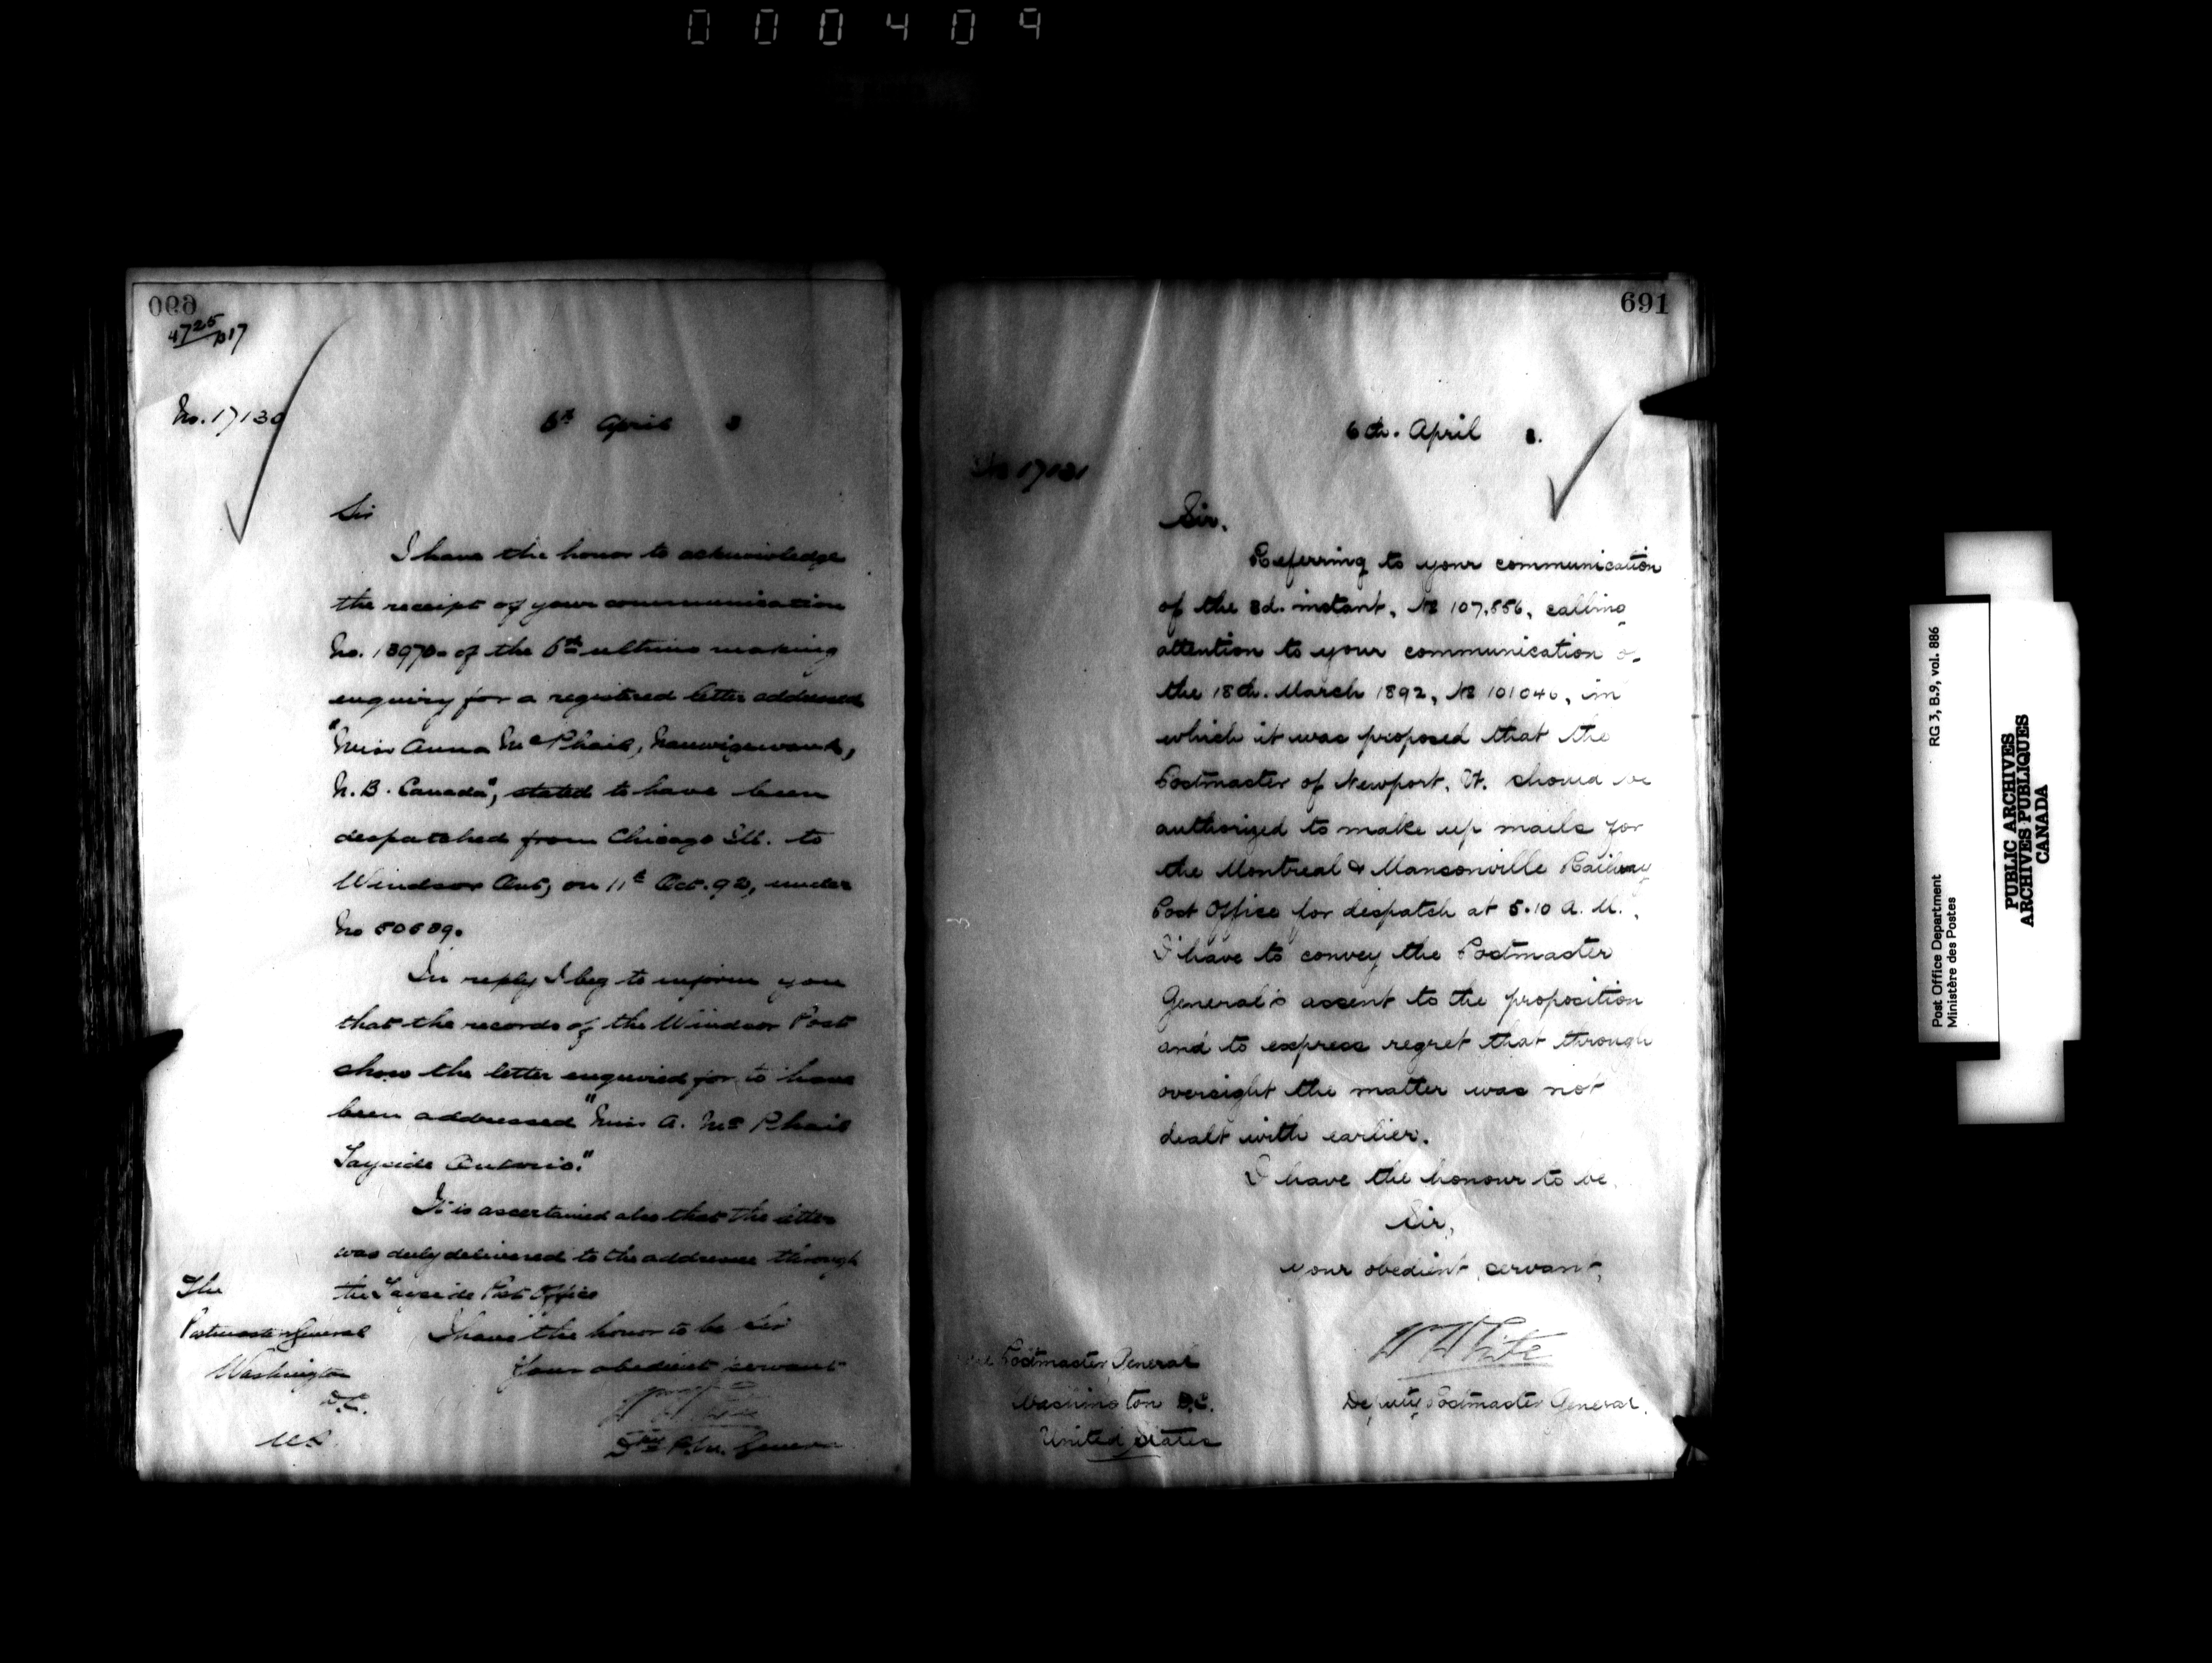 000409
690
4725/B17
No. 17130
6th April 3
Sir
I have the honor to acknowledge
the receipt of your communication
No. 13970 of the 6th ultimo making
enquiry for a registered letter addressed
"Miss Anna McPhail,
N.B. Canada", stated to have been
despatched from Chicago Ill. to
Windsor Ont, on 11th Oct. 92, under
No
In reply I beg to inform you
that the records of the Windsor Post
show the letter enquired for to have
been addressed "Miss A. McPhail
Tayside Ontario."
It is ascertained also that the letter
was duly delivered to the addressee through
the Tayside Post Office
I have the honor to be Sir
Your obedient servant
W White
Dy P.M. General
The
Postmaster General
Washington
D.C.
U.S.
691
6th. April 3.
No 17131
Sir,
Referring to your communication
of the 3d. instant, No 107,556, calling
attention to your communication of
the 18th. March 1892, No 101040, in
which it was proposed that the
Postmaster of Newport, Vt. should be
authorized to make up mails for
the Montreal & Mansonville Railway
Post Office for despatch at 5.10 A.M.,
I have to convey the Postmaster
General's assent to the proposition
and to express regret that through
oversight the matter was not
dealt with earlier.
I have the honour to be,
Sir,
your obedient servant,
W White
Deputy Postmaster General.
The Postmaster General
Washington D.C.
United States
Post Office Department
Ministère des Postes
RG 3, B.9, vol. 886
PUBLIC ARCHIVES
ARCHIVES PUBLIQUES
CANADA